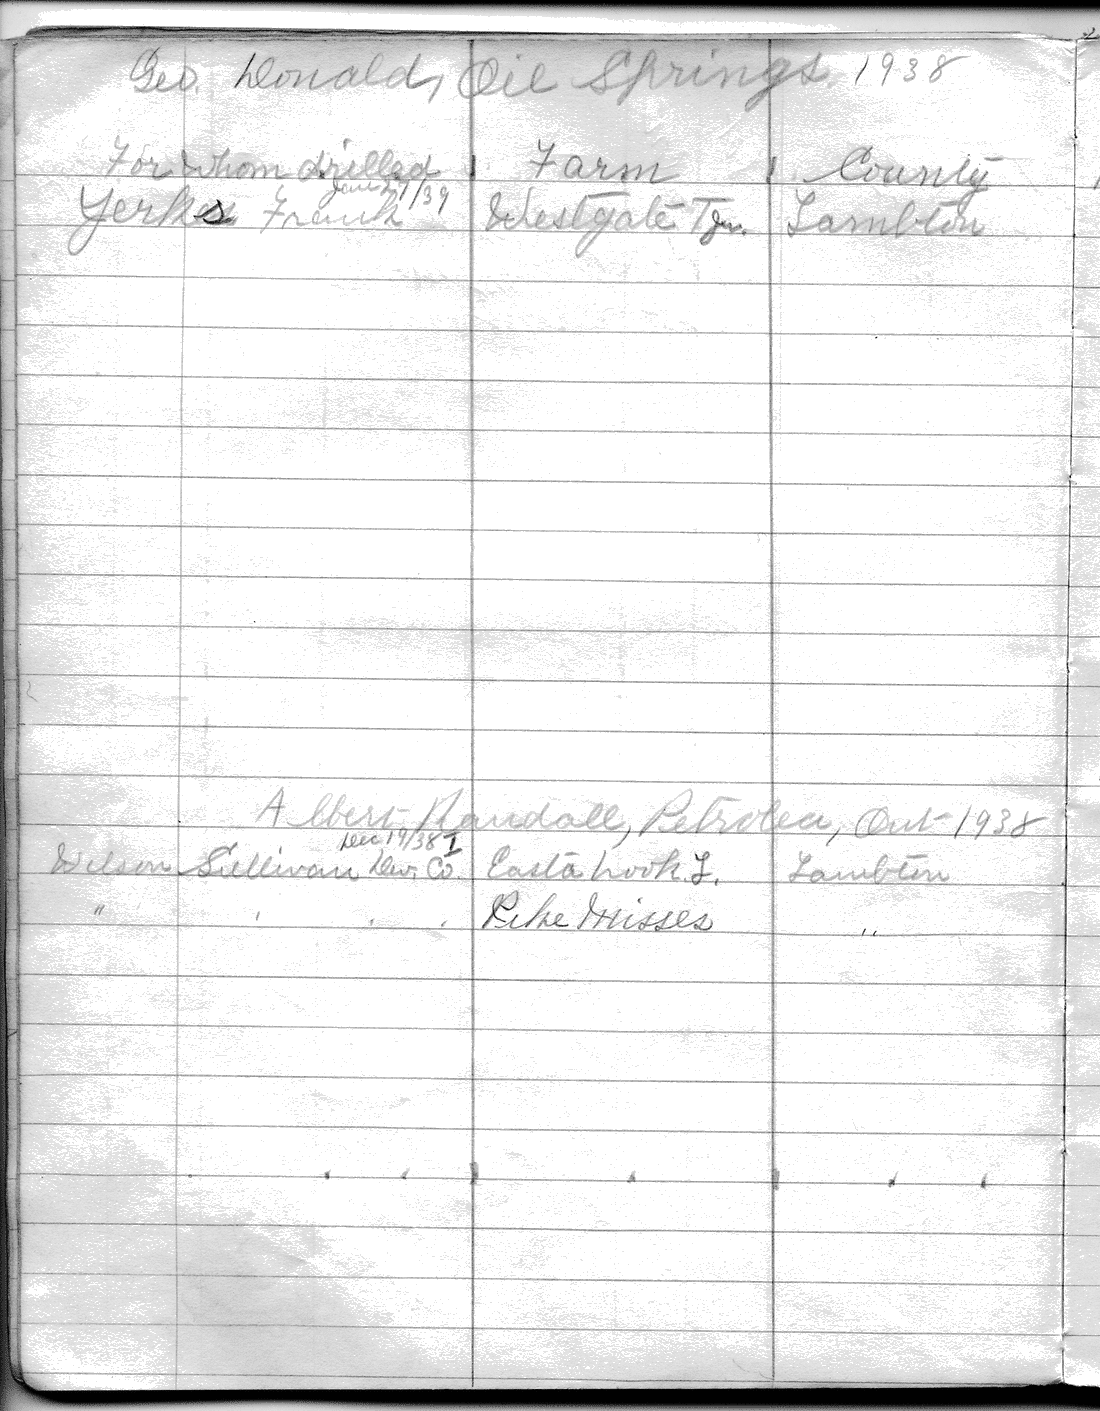 Geo. Donald, Oil Springs 1938
For whom drilled Farm County
Jan 27/39
Yerkes Frank Westgate T Jn. Lambton
Albert Randall, Petrolea, Ont 1938
Dec 19/38 I
Wilson Sullivan Dev. Co. Eastabrook L. Lambton
" " " " Pike Misses "